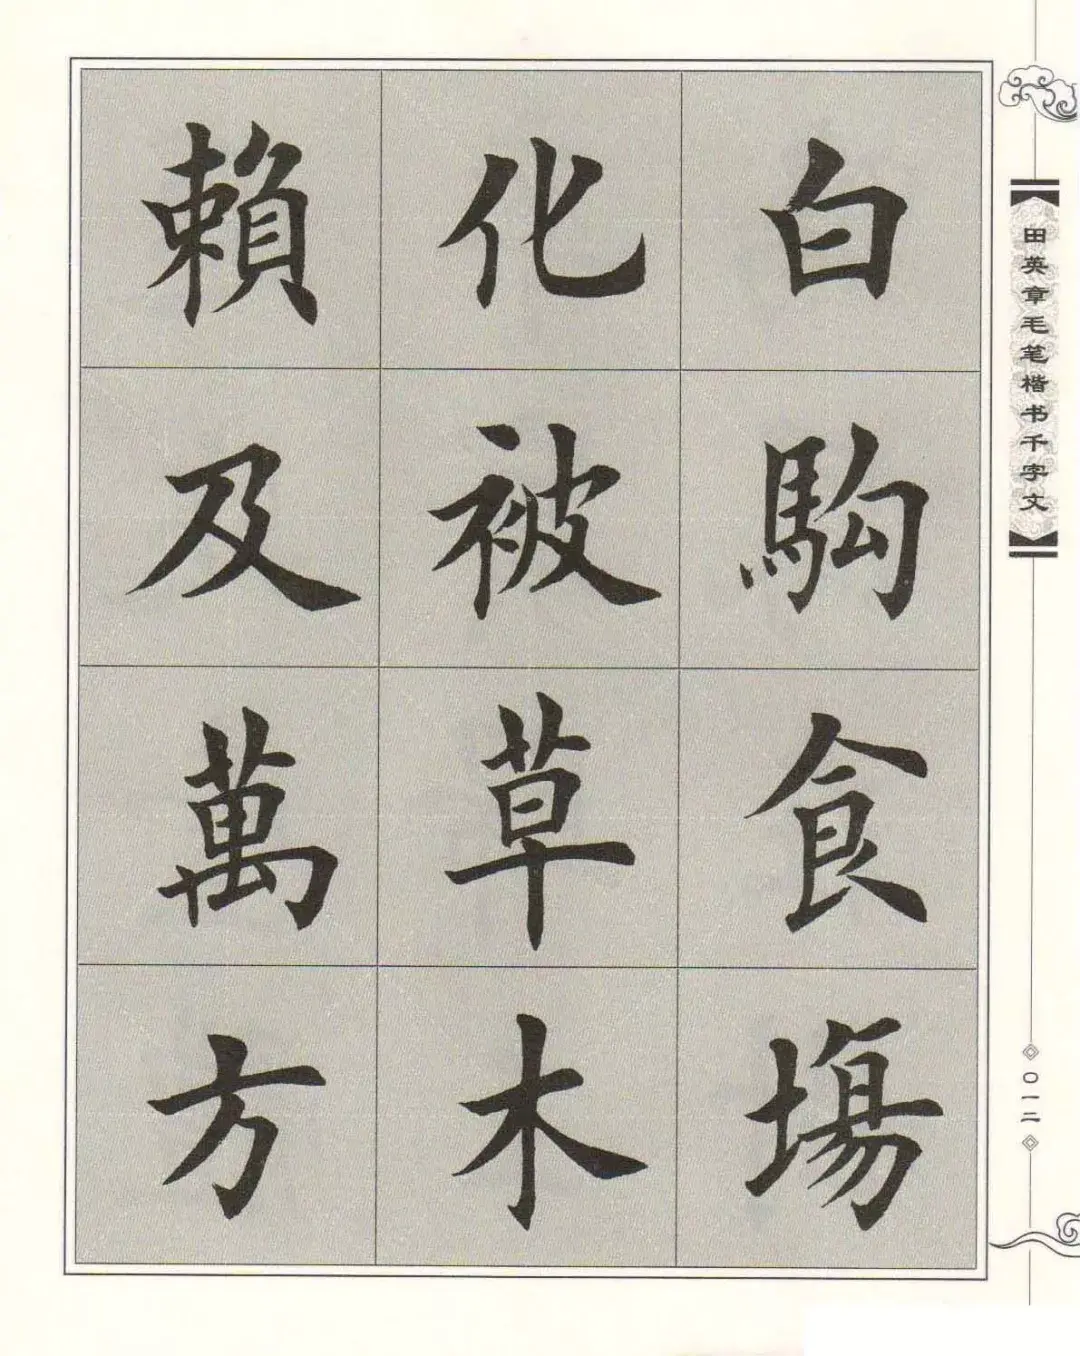 白駒食場
化被草木
賴及萬方
田英章毛笔楷书千字文
〇一二